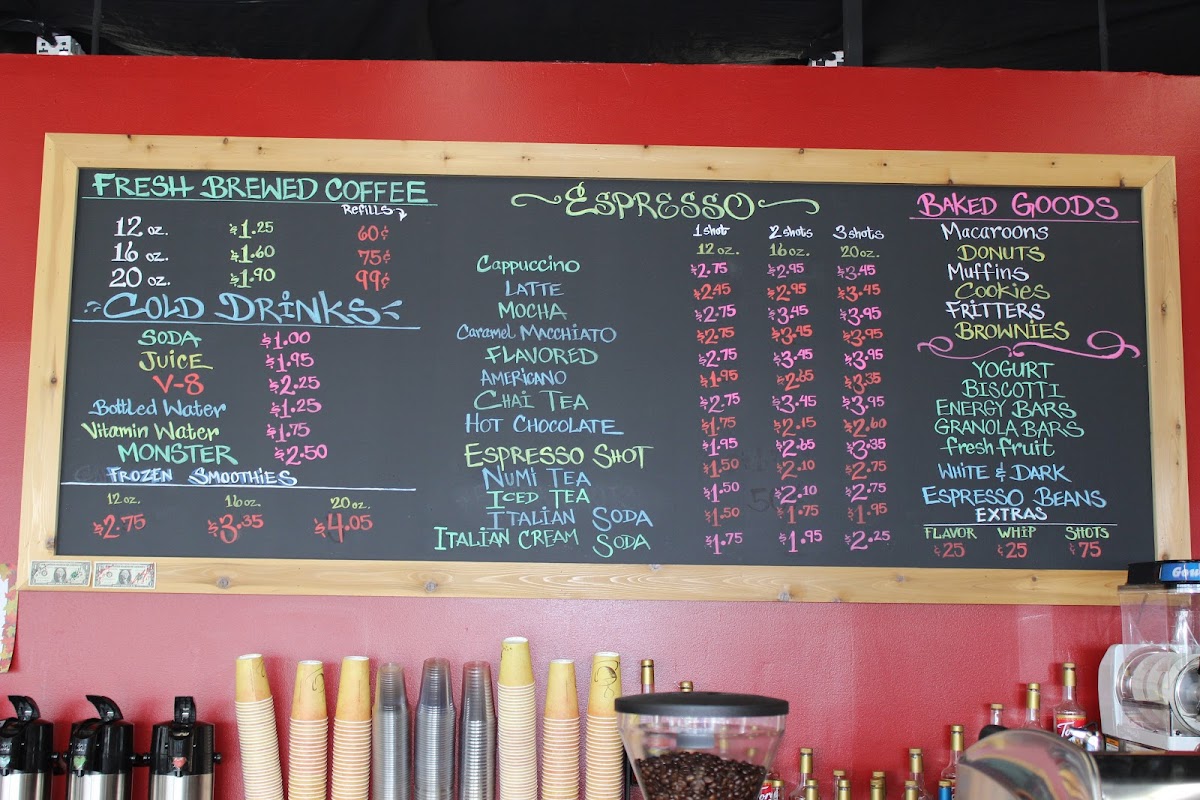 FRESH BREWED COFFEE
Refills
12 oz. $1.25 60¢
16 oz. $1.60 75¢
20 oz. $1.90 99¢
COLD DRINKS
SODA $1.00
JUICE $1.95
V-8 $2.25
Bottled Water $1.25
Vitamin Water $1.75
MONSTER $2.50
FROZEN SMOOTHIES
12 oz. 16 oz. 20 oz.
$2.75 $3.35 $4.05
ESPRESSO
1 shot 2 shots 3 shots
12 oz. 16 oz. 20 oz.
Cappuccino $2.75 $2.95 $3.45
LATTE $2.45 $2.95 $3.45
MOCHA $2.75 $3.45 $3.95
Caramel MACCHIATO $2.75 $3.45 $3.95
FLAVORED $2.75 $3.45 $3.95
AMERICANO $1.95 $2.65 $3.35
CHAI TEA $2.75 $3.45 $3.95
HOT CHOCOLATE $1.75 $2.15 $2.60
ESPRESSO SHOT $1.95 $2.65 $3.35
NUMI TEA $1.50 $2.10 $2.75
ICED TEA $1.50 $2.10 $2.75
ITALIAN SODA $1.50 $1.75 $1.95
ITALIAN CREAM SODA $1.75 $1.95 $2.25
BAKED GOODS
Macaroons
DONUTS
Muffins
Cookies
FRITTERS
BROWNIES
YOGURT
BISCOTTI
ENERGY BARS
GRANOLA BARS
fresh fruit
WHITE & DARK
ESPRESSO BEANS
EXTRAS
FLAVOR WHIP SHOTS
¢25 ¢25 ¢75